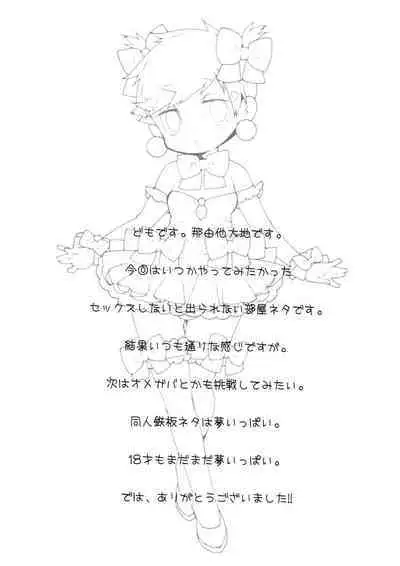 どもです。那由他大地です。
今回はいつかやってみたかった
セックスしないと出られない部屋ネタです。
結果いつも通りな感じですが。
次はオメガバとかも挑戦してみたい。
同人鉄板ネタは夢いっぱい。
18才もまだまだ夢いっぱい。
では、ありがとうございました!!